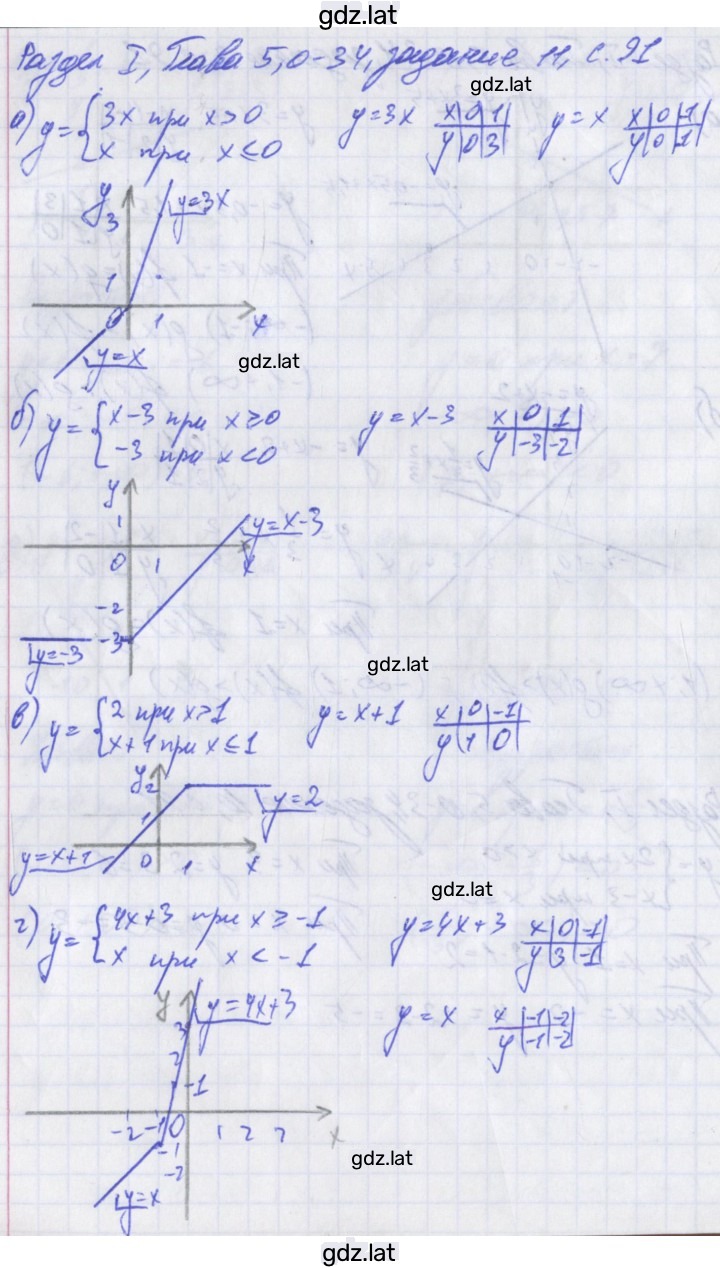 gdz.lat
Раздел I, Глава 5, О-34, задание 11, с. 91
gdz.lat
а) y = { 3x при x > 0
x при x ≤ 0
y = 3x
x | 0 | 1 |
y | 0 | 3 |
y = x
x | 0 | -1 |
y | 0 | 1 |
y
3
y=3x
1
0
1
x
y=x
gdz.lat
б) y = { x-3 при x ≥ 0
-3 при x < 0
y = x-3
x | 0 | 1 |
y | -3 | -2 |
y
1
y=x-3
0
1
x
-2
-3
y=-3
gdz.lat
в) y = { 2 при x > 1
x+1 при x ≤ 1
y = x+1
x | 0 | -1 |
y | 1 | 0 |
y
2
y=2
1
y=x+1
0
1
x
gdz.lat
г) y = { 4x+3 при x ≥ -1
x при x < -1
y = 4x+3
x | 0 | -1 |
y | 3 | -1 |
y
y=4x+3
y = x
x | -1 | -2 |
y | -1 | -2 |
3
2
1
-2 -1 0 1 2
x
-1
-2
y=x
gdz.lat
gdz.lat